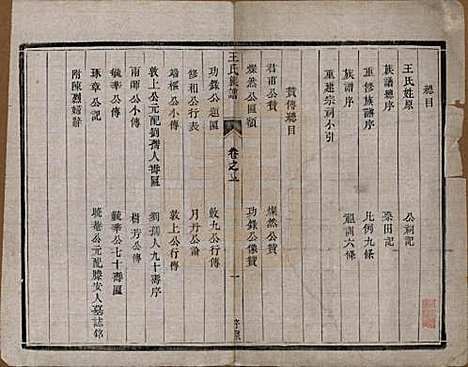 總目
王氏姓原
族譜總序
重修族譜序
族譜序
重建宗祠小引
公祠記
梁田記
凡例九條
祖訓六條
贊傳總目
君甫公贊
燦然公匾額
燦然公贊
功錄公像贊
王氏族譜
卷之五
一
功錄公匾
修和公行表
端樞公小傳
敦上公元配劉孺人壽匾
甫師公小傳
毓華公小傳
珠章公記
附陳烈婦辭
敦九公行傳
月丹公論
敦上公行傳
劉孺人九十壽序
樹芳公傳
毓華公七十壽匾
曉菴公元配滕安人墓誌銘